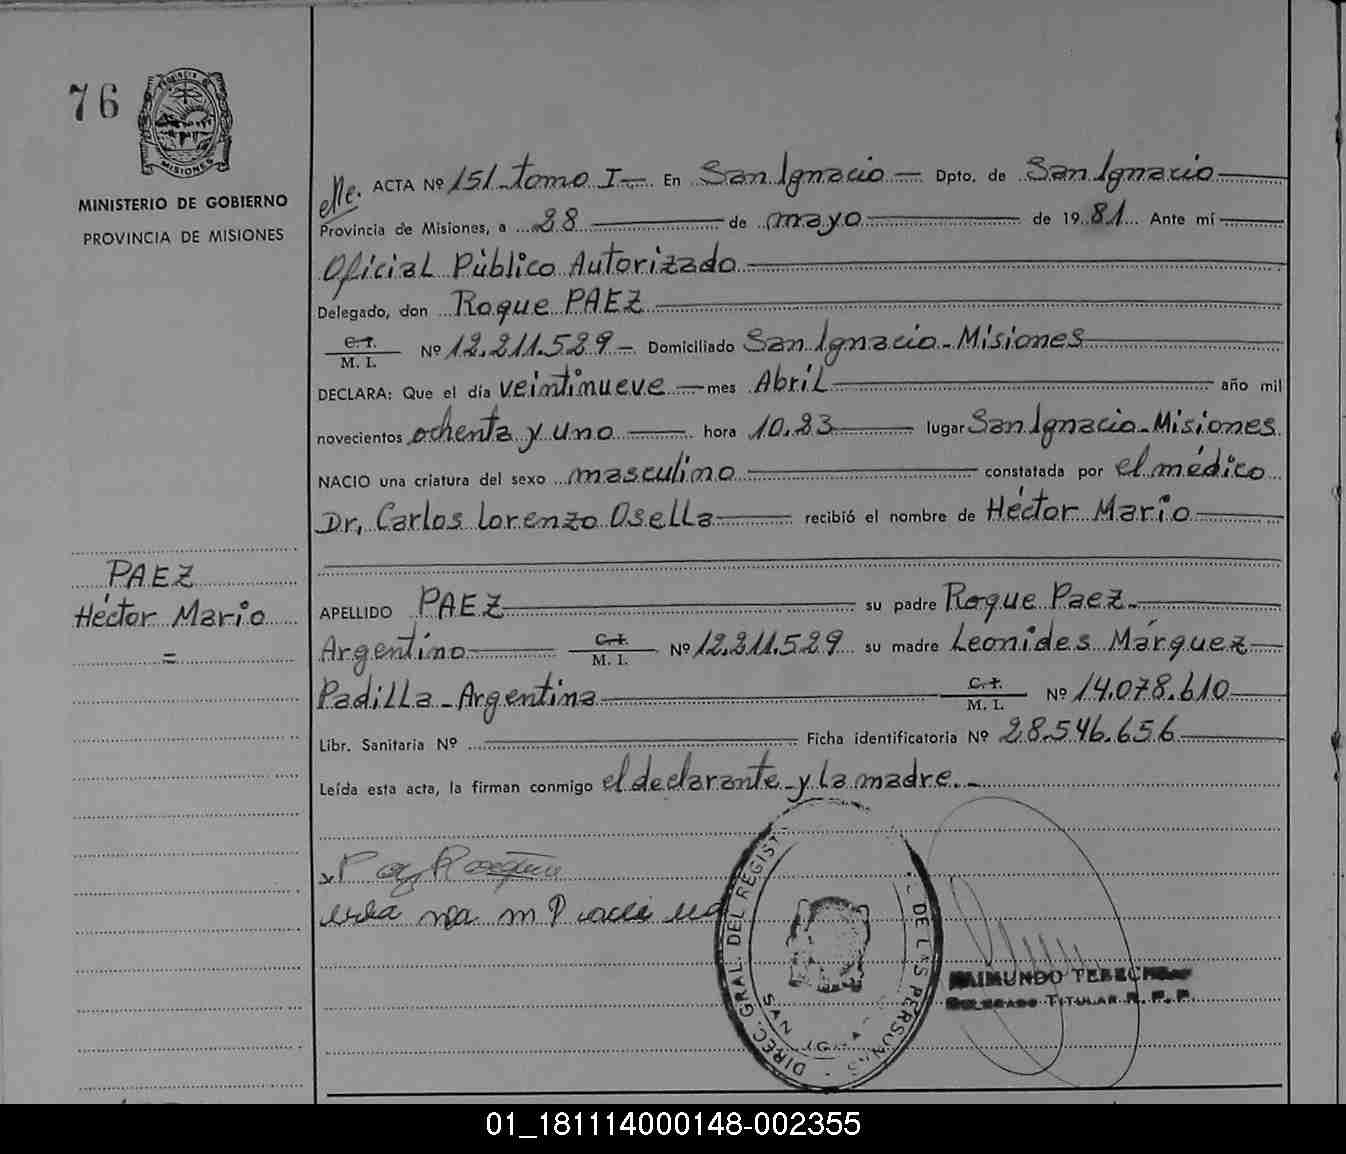 76
PROVINCIA DE
MISIONES
MINISTERIO DE GOBIERNO
PROVINCIA DE MISIONES
PAEZ
Héctor Mario
=
ACTA Nº 151-tomo I-. En San Ignacio - Dpto. de San Ignacio
Provincia de Misiones, a 28 de mayo de 1981 Ante mí
Oficial Público Autorizado
Delegado, don Roque PAEZ
C.I. M. I. Nº 12.211.529 - Domiciliado San Ignacio-Misiones
DECLARA: Que el día veintinueve - mes Abril año mil
novecientos ochenta y uno hora 10.23 lugar San Ignacio-Misiones
NACIO una criatura del sexo masculino constatada por el médico
Dr, Carlos Lorenzo Osella recibió el nombre de Héctor Mario
APELLIDO PAEZ su padre Roque Paez.
Argentino C.I. M. I. Nº 12.211.529 su madre Leonides Márquez
Padilla-Argentina C.I. M. I. Nº 14.078.610
Libr. Sanitaria Nº Ficha identificatoria Nº 28.546.656
Leída esta acta, la firman conmigo el declarante-y la madre.-
DIREC. GRAL. DEL REGIST DE LAS PERSONAS
SAN IGNA
RAIMUNDO
DELEGADO TITULAR R. P. P.
01_181114000148-002355